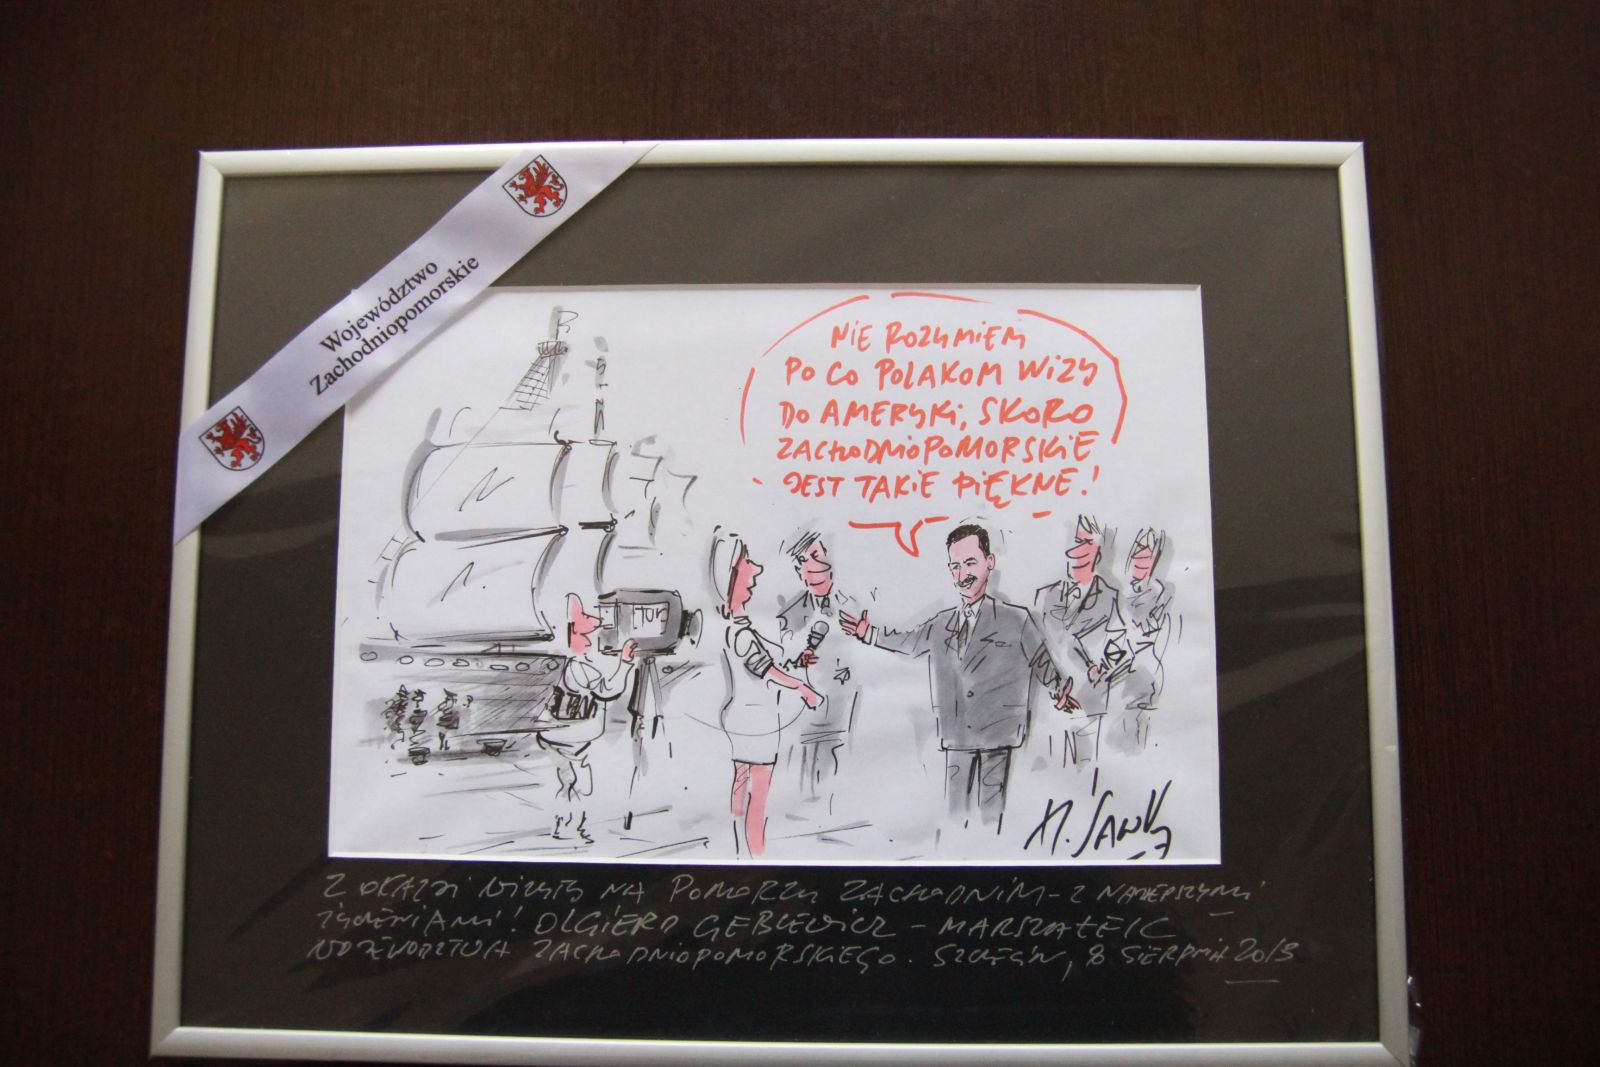 Województwo
Zachodniopomorskie
NIE ROZUMIEM
PO CO POLAKOM WIZY
DO AMERYKI, SKORO
ZACHODNIOPOMORSKIE
JEST TAKIE PIĘKNE!
H. SAWKA
Z OKAZJI WIZYTY NA POMORZU ZACHODNIM - Z NAJLEPSZYMI
ŻYCZENIAMI! OLGIERD GEBLEWICZ - MARSZAŁEK
WOJEWÓDZTWA ZACHODNIOPOMORSKIEGO. SZCZECIN, 8 SIERPNIA 2013